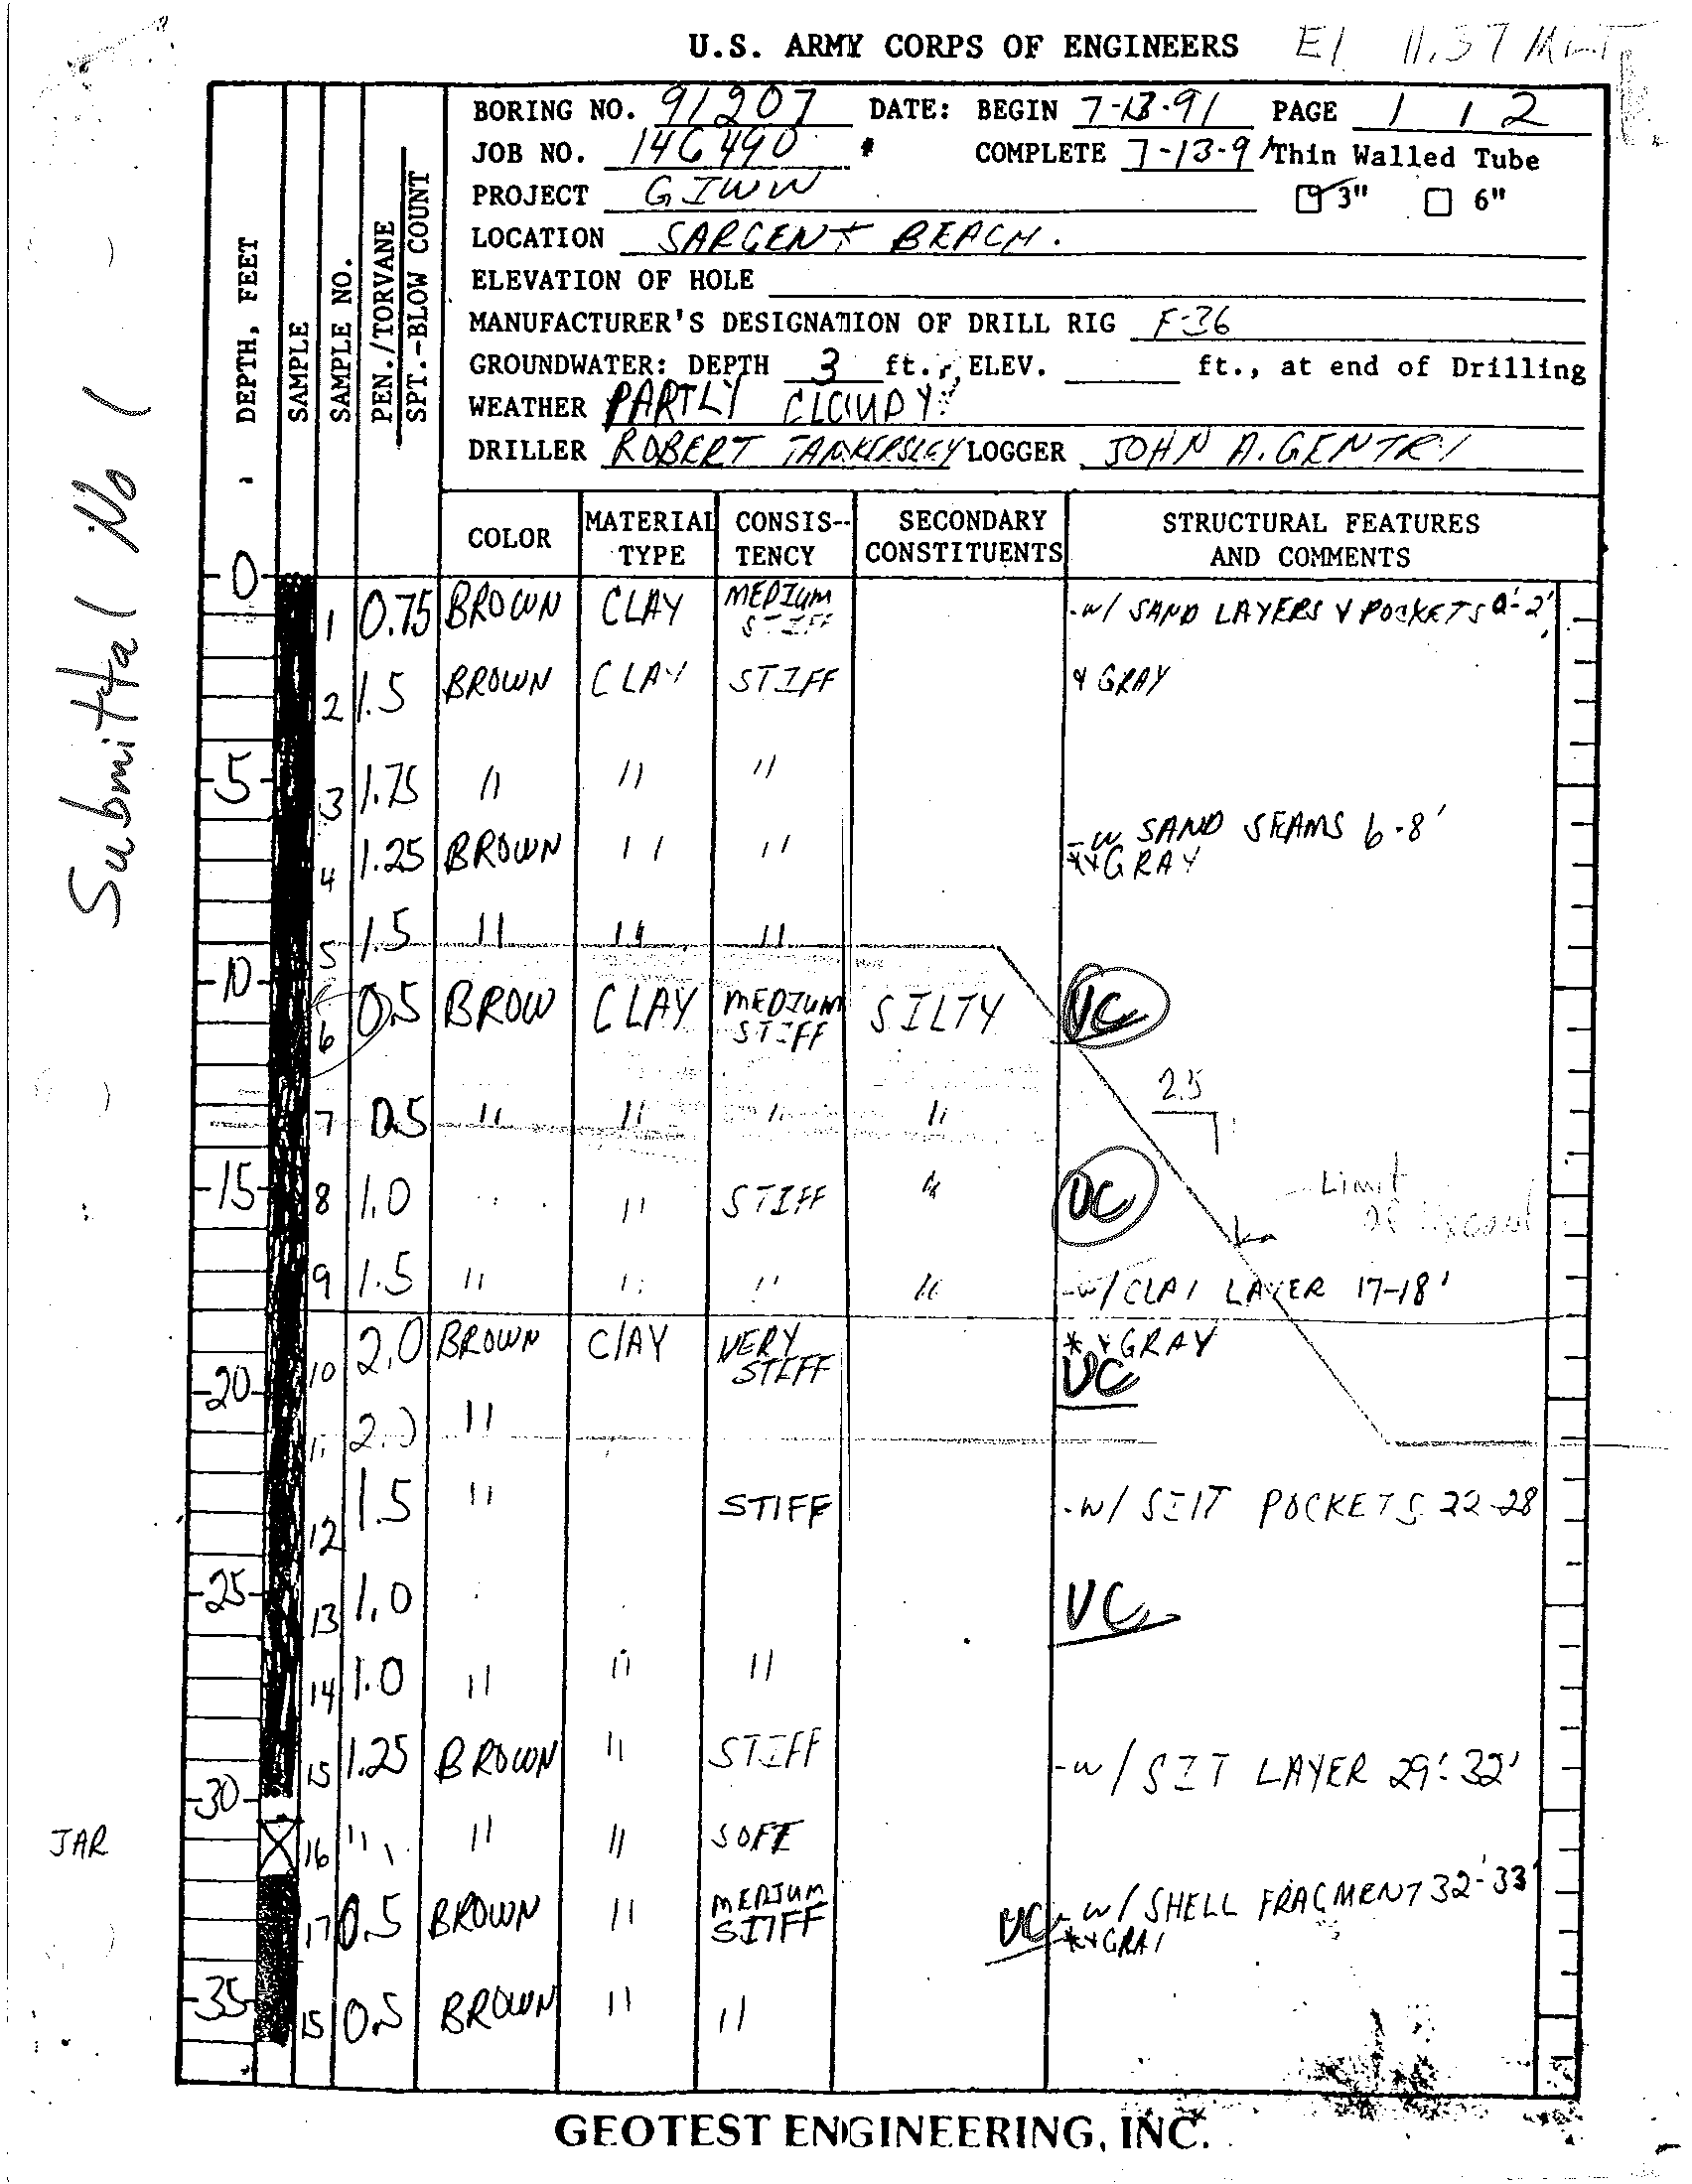 U.S. ARMY CORPS OF ENGINEERS El 11.37 MLT
BORING NO. 91207 DATE: BEGIN 7-13-91 PAGE 1 1 2
JOB NO. 14G490 COMPLETE 7-13-91 Thin Walled Tube
PROJECT GIWW 3" 6"
LOCATION SARGENT BEACH.
ELEVATION OF HOLE
MANUFACTURER'S DESIGNATION OF DRILL RIG F-36
GROUNDWATER: DEPTH 3 ft., ELEV. ft., at end of Drilling
WEATHER PARTLY CLOUDY
DRILLER ROBERT TANKERSLEY LOGGER JOHN A. GENTRY
DEPTH, FEET
SAMPLE
SAMPLE NO.
PEN./TORVANE
SPT.-BLOW COUNT
Submittal No 1
COLOR MATERIAL TYPE CONSIS-TENCY SECONDARY CONSTITUENTS STRUCTURAL FEATURES AND COMMENTS
0
1 0.75 BROWN CLAY MEDIUM STIFF -w/ SAND LAYERS & POCKETS 0'-2'
2 1.5 BROWN CLAY STIFF & GRAY
5
3 1.75 " " "
4 1.25 BROWN " " -w SAND SEAMS 6-8'
*& GRAY
5 1.5 " " "
10
6 0.5 BROW CLAY MEDIUM STIFF SILTY UC
2.5
1
7 0.5 " " " "
15
8 1.0 " STIFF " UC
Limit
of
9 1.5 " " " " -w/ CLAY LAYER 17-18'
10 2.0 BROWN ClAY VERY STIFF *& GRAY
20 UC
11 2.0 "
12 1.5 " STIFF -w/ SIlT POCKETS 22-28
25
13 1.0 UC
14 1.0 " " "
15 1.25 BROWN " STIFF -w/ SIT LAYER 29'-32'
30
JAR 16 " " " SOFT
17 0.5 BROWN " MEDIUM STIFF UC -w/ SHELL FRAGMENT 32'-33'
*& GRAY
35
15 0.5 BROWN " "
GEOTEST ENGINEERING, INC.